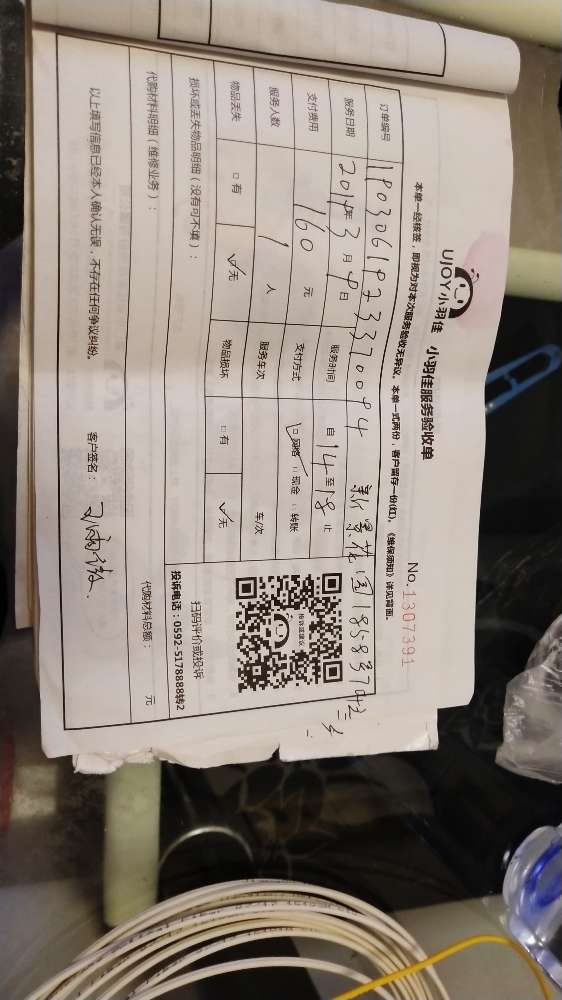 UJOY小羽佳 小羽佳服务验收单
No.1307391
本单一经核签，即视为对本次服务验收无异议。本单一式两份，客户留存一份(红)。《维保须知》详见背面。
订单编号 18030618233370094 新景花园
服务日期 2018年3月8日 服务时间 自14至18止
支付费用 160元 支付方式 ☑网络 □现金 □转账
服务人数 1人 服务车次 车/次
物品丢失 □有 ☑无 物品损坏 □有 ☑无
扫码评价或投诉
投诉电话：0592-5178888转2
损坏或丢失物品明细（没有可不填）：
代购材料明细（维修业务）： 代购材料总额： 元
以上填写信息已经本人确认无误，不存在任何争议纠纷。 客户签名：